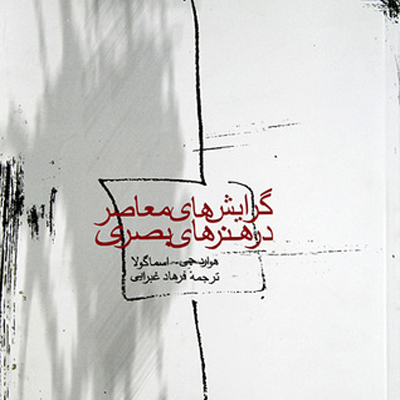 گرایش‌های معاصر
در هنرهای بصری
هوارد جی. اسماگولا
ترجمهٔ فرهاد غبرایی